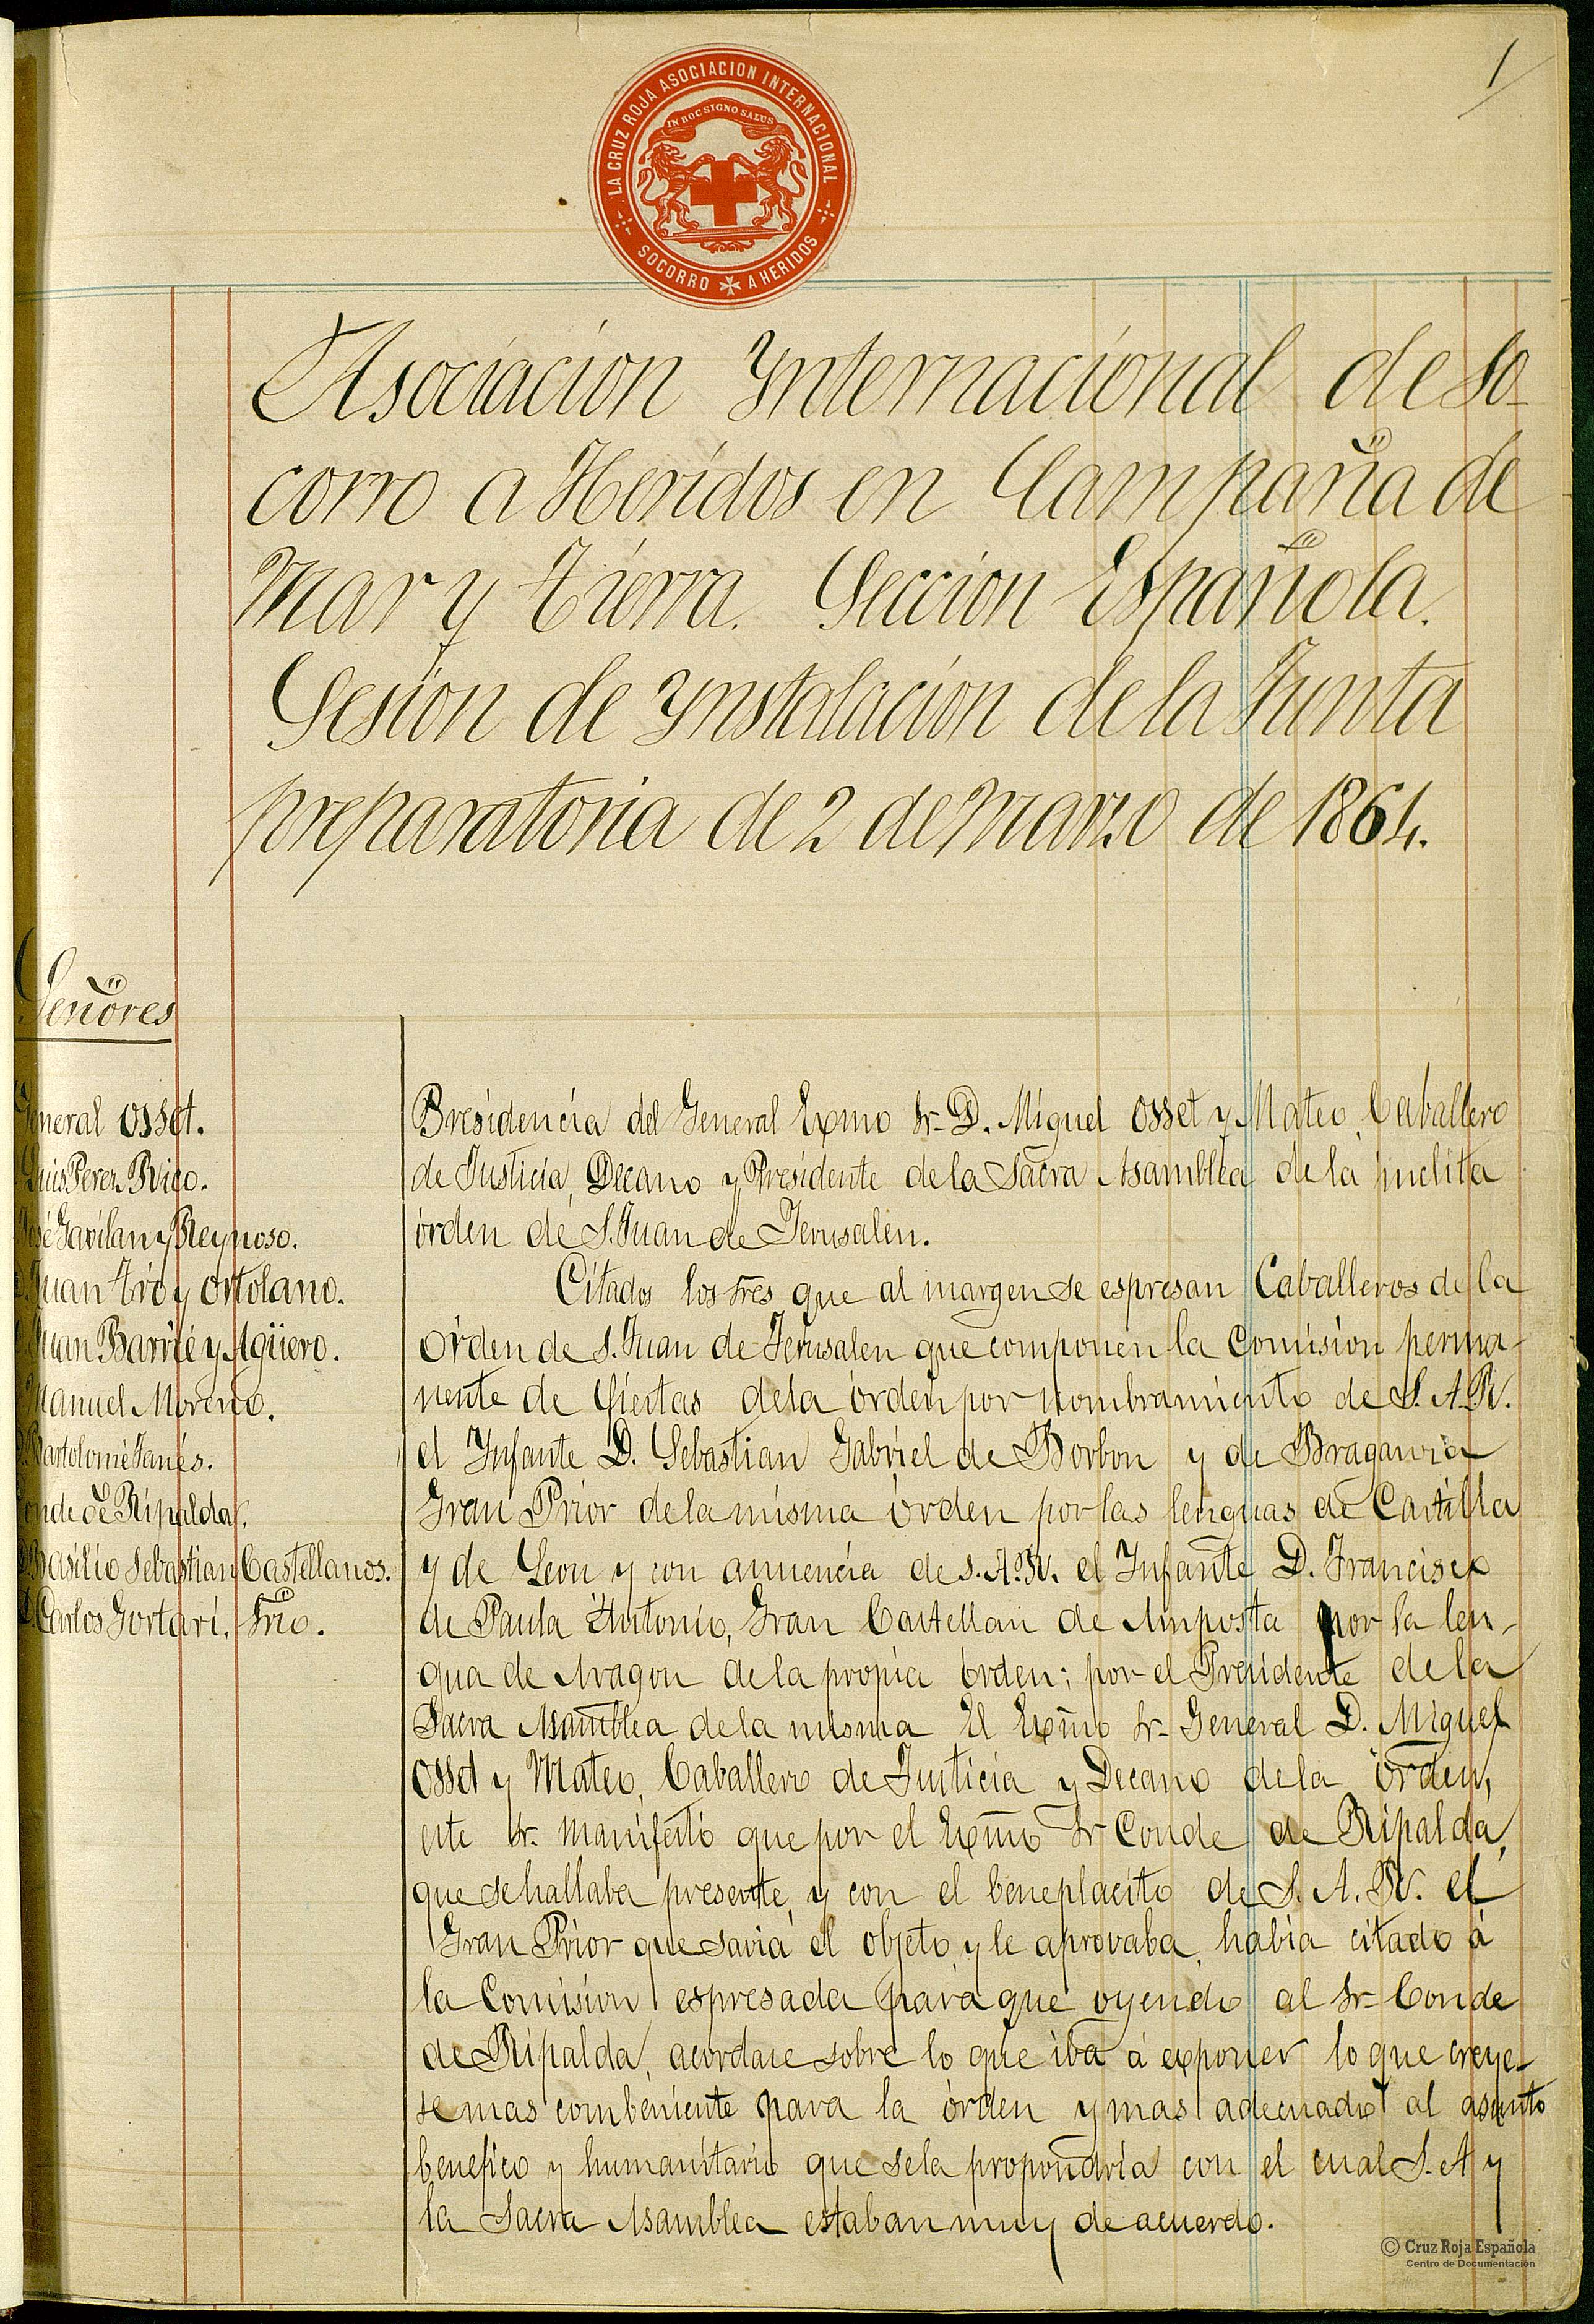 1
LA CRUZ ROJA ASOCIACION INTERNACIONAL
IN HOC SIGNO SALUS
SOCORRO A HERIDOS
Asociacion Internacional de So-
corro a Heridos en Campaña de
Mar y Tierra. Seccion Española.
Sesion de Instalacion de la Junta
preparatoria de 2 de Marzo de 1864.
Señores
General Osset.
Luis Perez Rico.
José Gavilan y Reynoso.
Juan Tro y Ortolano.
Juan Barrié y Agüero.
Manuel Moreno.
D. Bartolomé
Conde de Ripalda.
D. Basilio Sebastian Castellanos.
D. Carlos Gortari, Srio.
Presidencia del General Exmo Sr. D. Miguel Osset y Mateo, Caballero
de Justicia, Decano y Presidente de la Sacra Asamblea de la inclita
órden de S. Juan de Jerusalen.
Citados los Sres que al margen se espresan Caballeros de la
Orden de S. Juan de Jerusalen que componen la Comision perma-
nente de de la órden por nombramiento de S. A. R.
el Infante D. Sebastian Gabriel de Borbon y de Braganza
Gran Prior de la misma órden por las lenguas de Castilla
y de Leon y con anuencia de S. A. R. el Infante D. Francisco
de Paula Antonio, Gran Castellan de Amposta por la len-
gua de Aragon de la propia órden; por el Presidente de la
Sacra Asamblea de la misma El Exmo Sr. General D. Miguel
Osset y Mateo, Caballero de Justicia y Decano de la órden,
este Sr. manifestó que por el Exmo Sr Conde de Ripalda,
que se hallaba presente, y con el beneplacito de S. A. R. el
Gran Prior que savia el objeto y le aprovaba, habia citado á
la Comision espresada para que oyendo al Sr. Conde
de Ripalda, acordase sobre lo que iba á exponer lo que creye-
se mas combeniente para la órden y mas adecuado al asunto
benefico y humanitario que se la propondria con el cual S. A y
la Sacra Asamblea estaban muy de acuerdo.
© Cruz Roja Española
Centro de Documentación